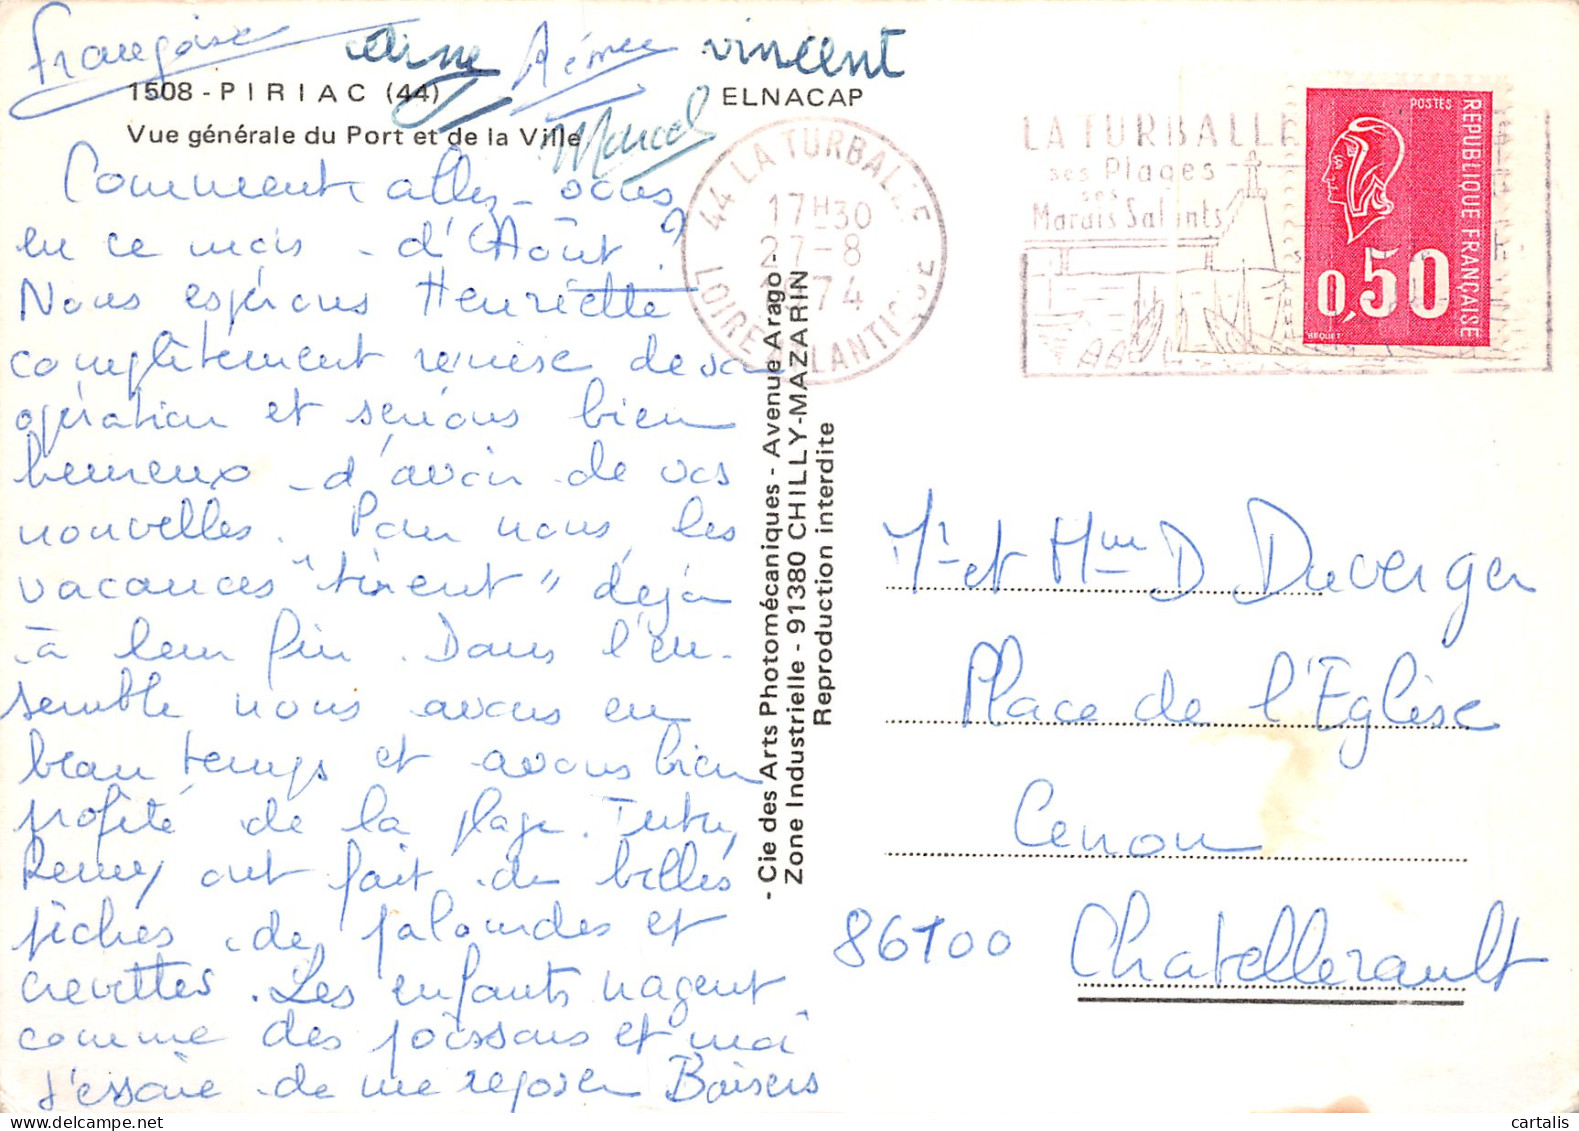 Françoise Céline Rémee vincent
1508 - PIRIAC (44) ELNACAP
Vue générale du Port et de la Ville
Marcel
Comment allez-vous
en ce mois d'Août ?
Nous espérons Henriette
complètement remise de sa
opération et serions bien
heureux d'avoir de vos
nouvelles. Pour nous, les
vacances "tirent" déjà
à leur fin. Dans l'en-
semble nous avons eu
beau temps et avons bien
profité de la plage.
Remy ont fait de belles
pêches de palourdes et
crevettes. Les enfants nagent
comme des poissons et moi
j'essaie de me reposer Baisers
- Cie des Arts Photomécaniques - Avenue Arago -
Zone Industrielle - 91380 CHILLY-MAZARIN
Reproduction interdite
44 LA TURBALLE
17H30
27-8
1974
LOIRE ATLANTIQUE
LA TURBALLE
ses Plages
ses
Marais Salants
POSTES
REPUBLIQUE FRANÇAISE
0,50
BEQUET
Mr et Mme D Duverger
Place de l'Eglise
Cenon
86100 Chatellerault
cartalis - fr.delcampe.net